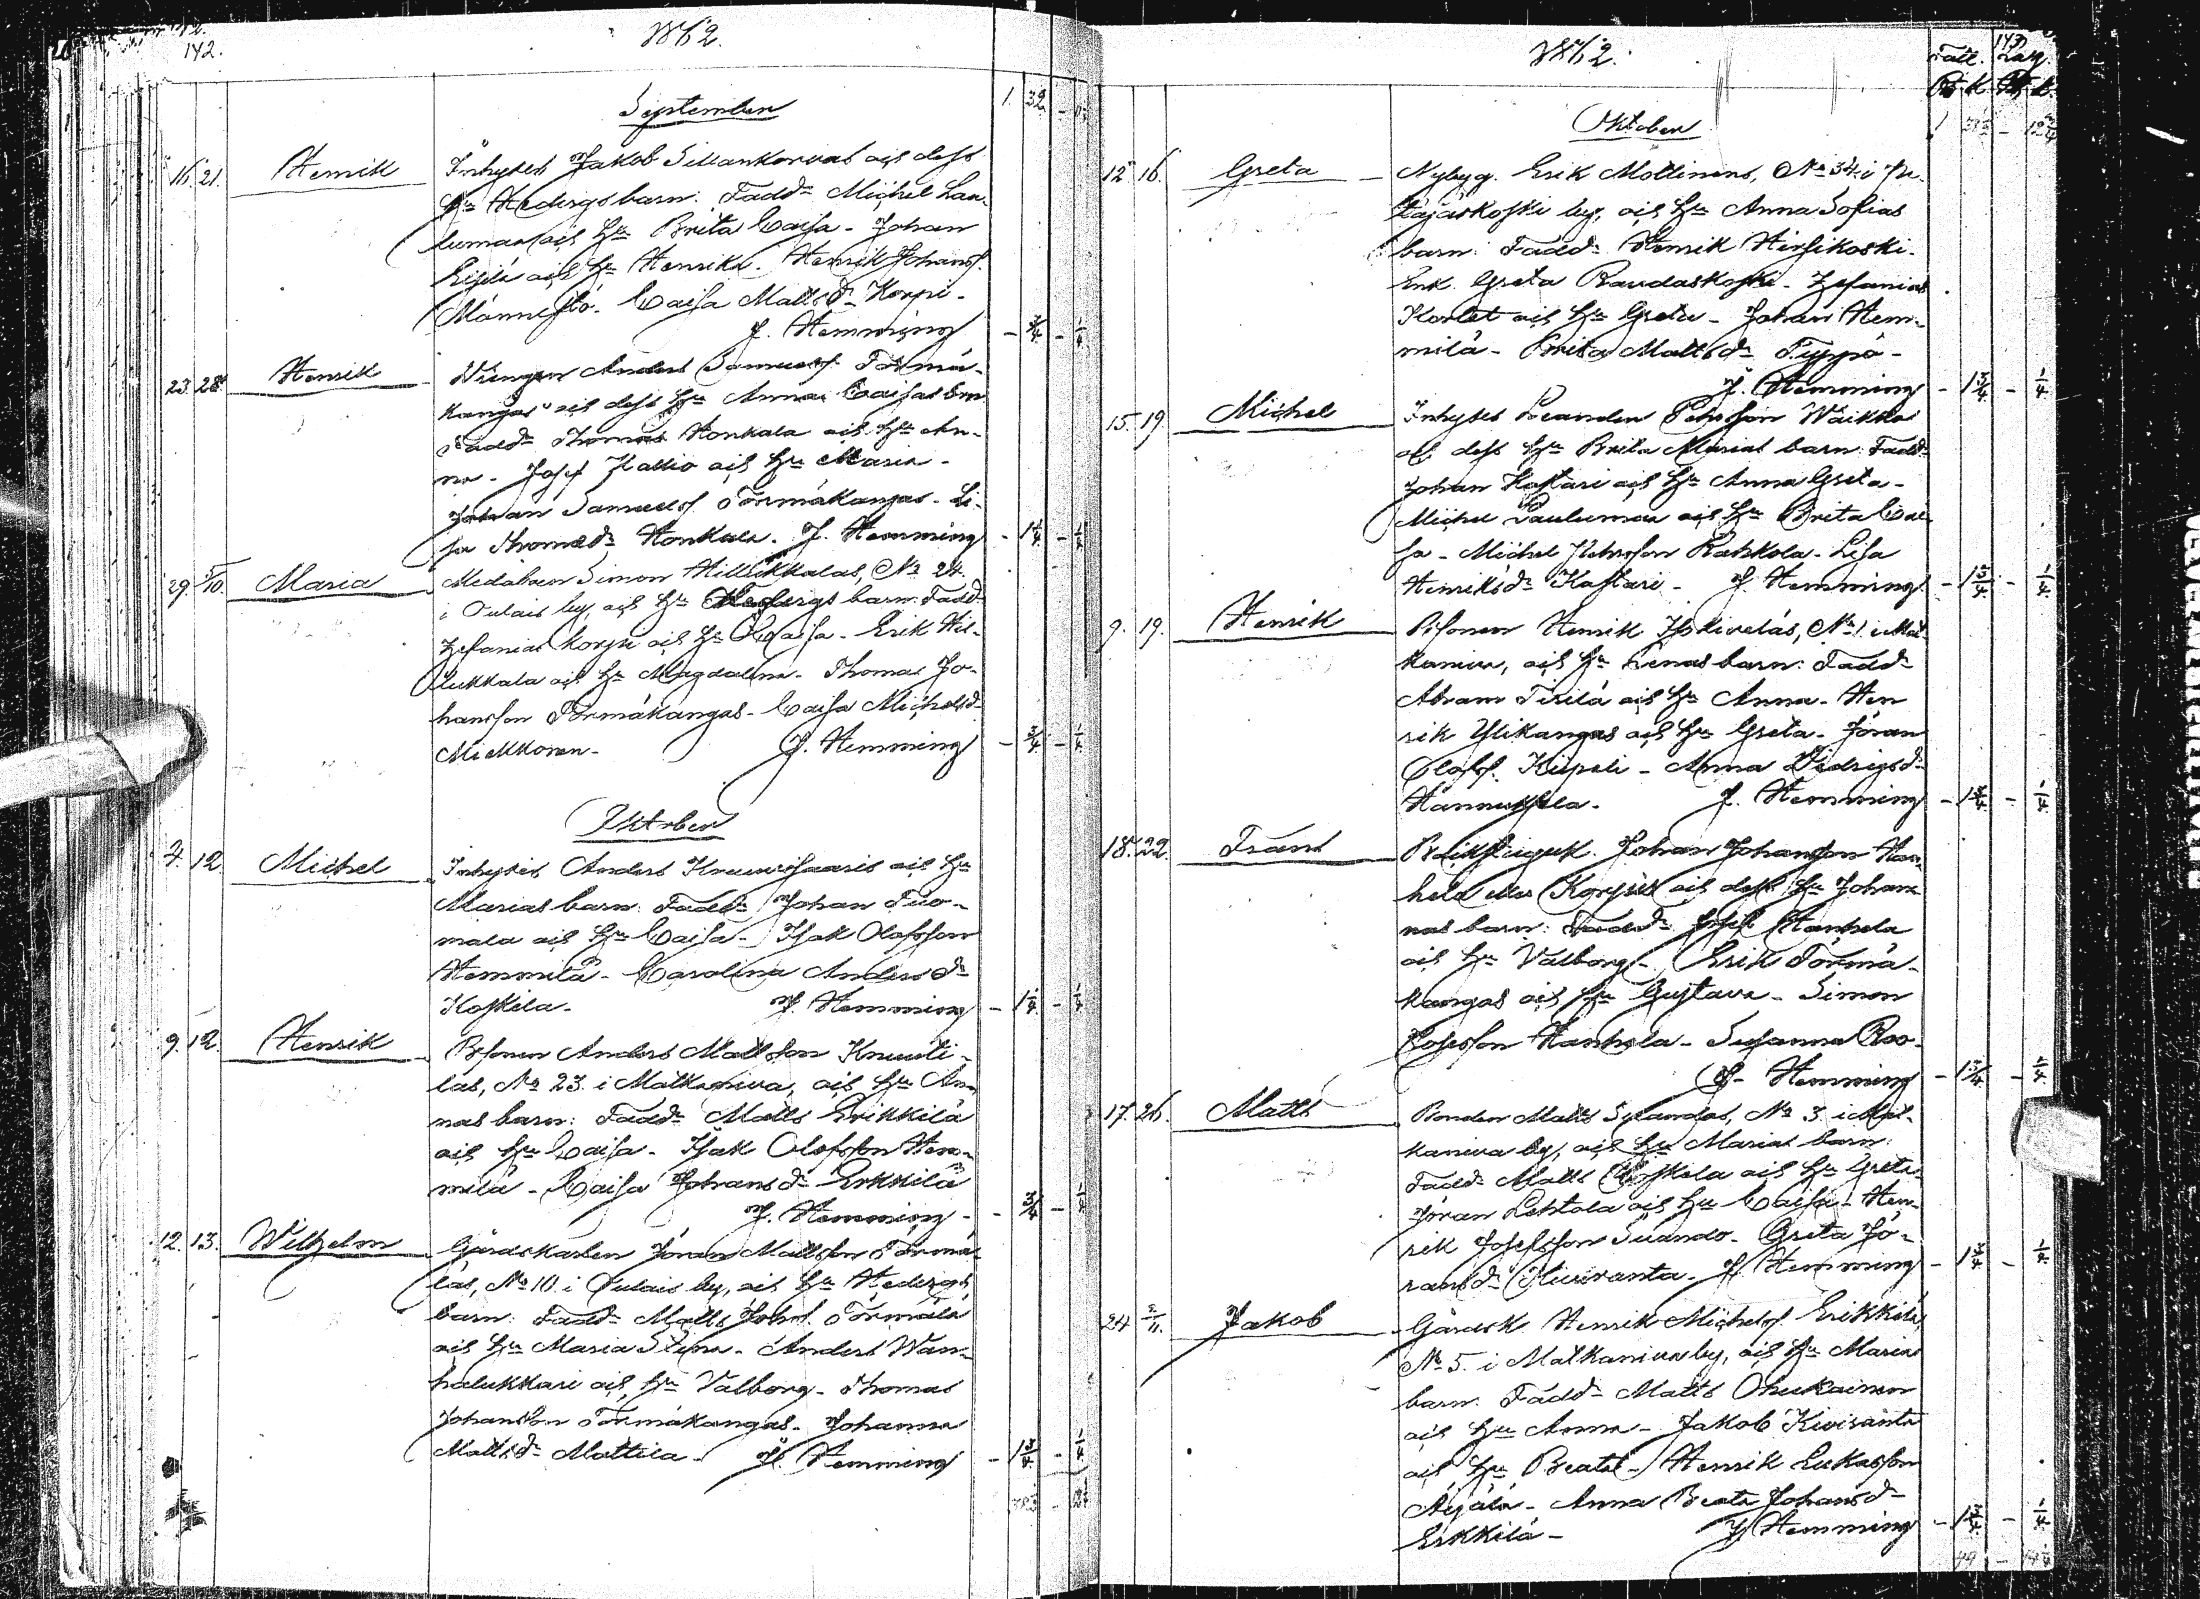 142.
1862.
September
16. 21. Henrik Inhyses Jakob Sillankorvas och dess
hu Hedvigs barn. Fadd: Michel Lau-
lumaa och hu Brita Caisa - Johan
och hu Henrika. Henrik Johanss.
Männistö. Caisa Mattsdr Korpi-
J. Hemming - 3/4 - 1/4
23. 28. Henrik Drängen Anders Samuelss. Törmä-
kangas och dess hu Anna Caisas barn
Fadd: Thomas Honkala och hu An-
na - Josef Kallio och hu Maria -
Johan Samuelss. Törmäkangas - Li-
sa Thomasdr Honkala. J. Hemming - 1 1/4 - 1/4
29. 5/10. Maria Medåboen Simon Hillukkalas, No 24.
i Oulais by, och hu Hedvigs barn. Fadd:
Zefanias Korpi och hu Caisa - Erik Hil-
lukkala och hu Magdalena - Thomas Jo-
hansson Törmäkangas - Caisa Michelsdr
Miekkonen - J. Hemming - 3/4 - 1/4
Oktober
7. 12. Michel Inhyses Anders Knuuttisaaris och hu
Marias barn: Fadd: Johan Tuo-
mala och hu Caisa - Isak Olofsson
Hemmilä - Carolina Andersdr
Koskela - J. Hemming - 1 1/4 - 1/4
9. 12. Henrik Bonden Anders Mattsson Knuuti-
las, No 23. i Matkaniva, och hu An-
nas barn: Fadd: Matts Erikkilä
och hu Caisa - Isak Olofsson Hem-
milä - Caisa Johansdr Erkkilä
J. Hemming - 3/4 - 1/4
12. 13. Wilhelm Gårdskarlen Jöran Mattsson Törmä-
läs, No 10. i Oulais by, och hu Hedvigs
barn: Fadd: Matts Johss. Törmälä
och hu Maria Stina - Anders Wan-
halukkari och hu Valborg - Thomas
Johansson Törmäkangas - Johanna
Mattsdr Mattila - J. Hemming - 1 3/4 - 1/4
143.
1862.
Oktober
12. 16. Greta Nybyg. Erik Mollinens, No 34. i Pi-
päjäskoski by, och hu Anna Sofias
barn: Fadd: Henrik Hirsikoski -
Enk. Greta Raudaskoski - Zefanias
och hu Greta - Johan Hem-
milä - Brita Mattsdr Typpö -
J. Hemming - 1 3/4 - 1/4
15. 19. Michel Inhyses Leander Pehrsson Waikko
och dess hu Brita Marias barn: Fadd:
Johan Kastari och hu Anna Greta -
Michel Laulumaa och hu Brita Cai-
sa - Michel Pehrsson Rahkola - Lisa
Henriksdr Kastari - J. Hemming - 1 3/4 - 1/4
9. 19. Henrik Bonden Henrik Iskiveläs, No 1. i Mat-
kaniva, och hu Lenas barn: Fadd:
Abram Tirilä och hu Anna - Hen-
rik Ylikangas och hu Greta - Jöran
Olofss. Küpeli - Anna Didrigsdr
Hannuksela - J. Hemming - 1 3/4 - 1/4
18. 22. Frans Johan Johansson Han-
hela eller Korpis och dess hu Johan-
nas barn: Fadd: Josef Hanhela
och hu Valborg - Erik Törmä-
kangas och hu Gustava - Simon
Josefsson Hanhela - Susanna Roo-
J. Hemming - 1 3/4 - 1/4
17. 26. Matts Bonden Matts Sipandas, No 3. i Mat-
kaniva by, och hu Marias barn:
Fadd: Matts Koskela och hu Greta -
Jöran Lehtola och hu Caisa - Hen-
rik Josefsson Suando - Greta Jö-
ransdr Hiiriranta - J. Hemming - 1 3/4 - 1/4
24. 2/11. Jakob Gårdsk. Henrik Michelss. Erikkilä,
No 5. i Matkaniva by, och hu Marias
barn. Fadd: Matts Ohukainen
och hu Anna - Jakob Kiviranta
och hu Beata - Henrik Lukasson
Äijälä - Anna Beata Johansdr
Erkkilä - J. Hemming - 1 3/4 - 1/4